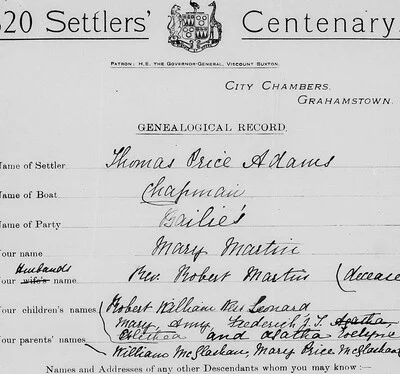 820 Settlers' Centenary.
PATRON: H.E. THE GOVERNOR-GENERAL, VISCOUNT BUXTON.
CITY CHAMBERS,
GRAHAMSTOWN.
GENEALOGICAL RECORD.
Name of Settler Thomas Price Adams
Name of Boat Chapman
Name of Party Bailie's
Your name Mary Martin
Husbands
Your wife's name Rev. Robert Martin (decease
Your children's names Robert William Leonard
Mary, Amy, Frederick J. T. Agatha,
and Agatha
Your parents' names William McGlashan, Mary Price McGlashan
Names and Addresses of any other Descendants whom you may know:-